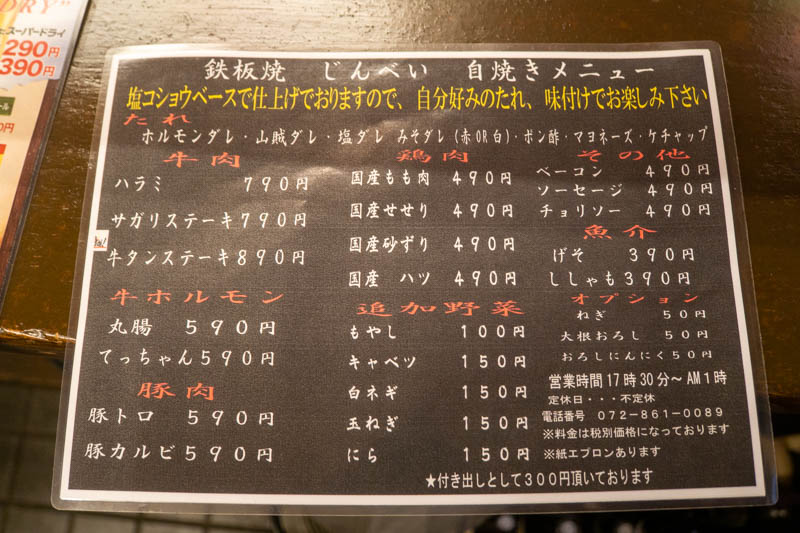 DRY"
スーパードライ
290円
390円
鉄板焼 じんべい 自焼きメニュー
塩コショウベースで仕上げでおりますので、自分好みのたれ、味付けでお楽しみ下さい
たれ
ホルモンダレ・山賊ダレ・塩ダレ みそダレ(赤OR白)・ポン酢・マヨネーズ・ケチャップ
牛肉
ハラミ 790円
サガリステーキ 790円
牛タンステーキ 890円
牛ホルモン
丸腸 590円
てっちゃん 590円
豚肉
豚トロ 590円
豚カルビ 590円
鶏肉
国産もも肉 490円
国産せせり 490円
国産砂ずり 490円
国産 ハツ 490円
追加野菜
もやし 100円
キャベツ 150円
白ネギ 150円
玉ねぎ 150円
にら 150円
その他
ベーコン 490円
ソーセージ 490円
チョリソー 490円
魚介
げそ 390円
ししゃも 390円
オプション
ねぎ 50円
大根おろし 50円
おろしにんにく 50円
営業時間17時30分~AM1時
定休日・・・不定休
電話番号 072-861-0089
※料金は税別価格になっております
※紙エプロンあります
★付き出しとして300円頂いております